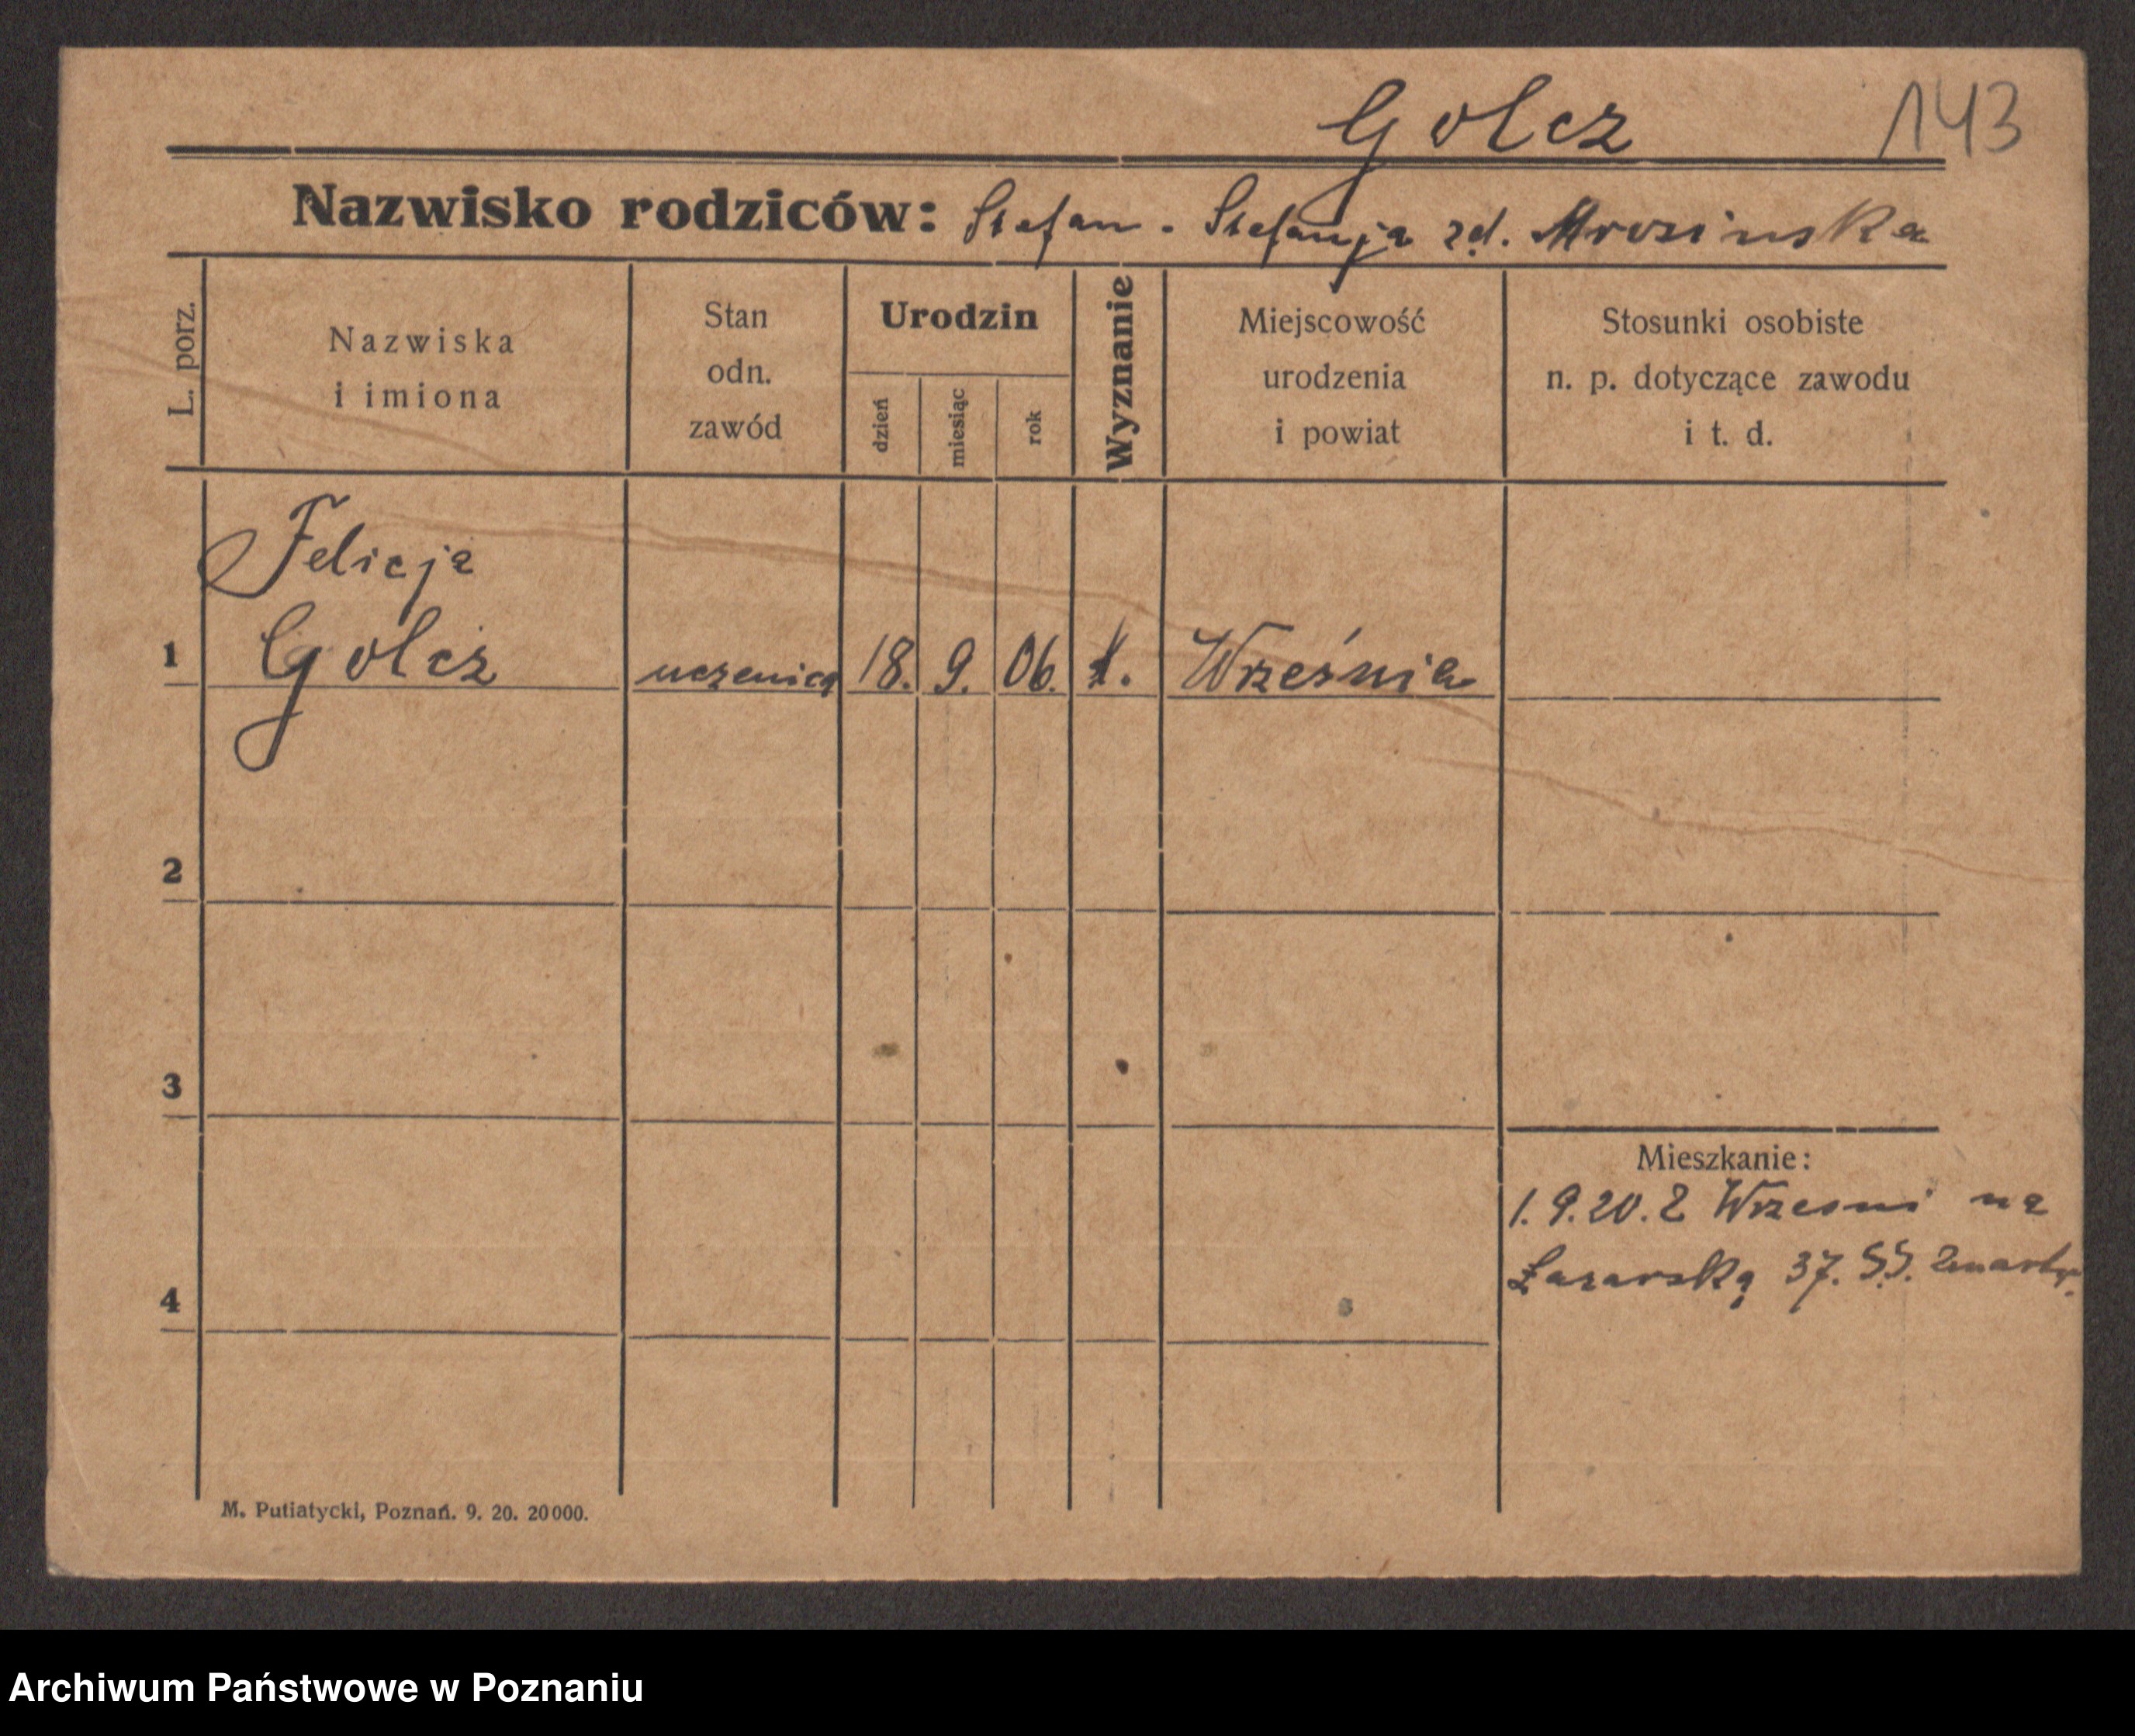 Golcz 143
Nazwisko rodziców: Stefan - Stefanja zd. Mrozinska
L. porz.
Nazwiska
i imiona
Stan
odn.
zawód
Urodzin
dzień
miesiąc
rok
Wyznanie
Miejscowość
urodzenia
i powiat
Stosunki osobiste
n. p. dotyczące zawodu
i t. d.
Felicja
1 Golcz uczenica 18. 9. 06. Września
2
3
Mieszkanie:
1.9.20. Z Wrzesni na
Łazarską 37.
4
M. Putiatycki, Poznań. 9. 20. 20000.
Archiwum Państwowe w Poznaniu